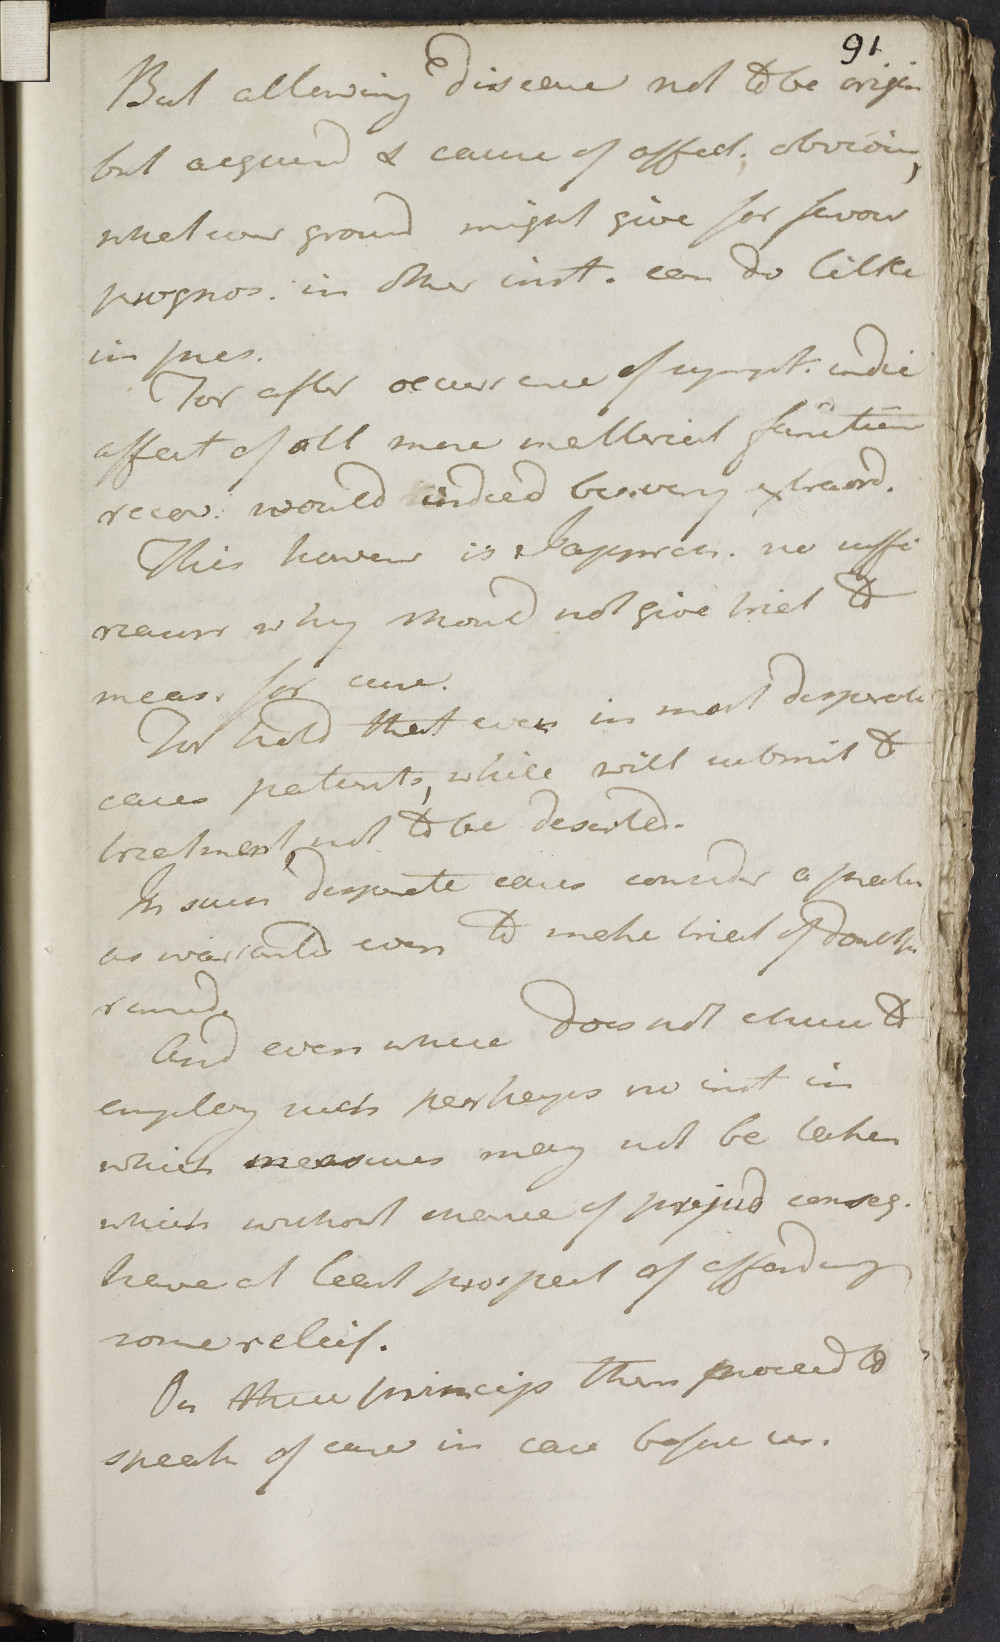 91
But allowing disease not to be origin
but acquired & cause of affect. obvious,
whatever ground might give for favour
prognos. in other inst. can do little
in pres.
For after occurrence of sympt. indic
affect of all more material function
recov. would indeed be very extraord.
This however is I appreh. no suffi
reason why should not give trial to
meas. for cure.
For hold that even in most desperate
cases patients, while will submit to
treatment, not to be deserted.
In such desperate cases consider a pract
as warranted even to make trial of doubtfu
remed.
And even where does not chuse to
employ such perhaps no inst in
which measures may not be taken
which without chance of prejud conseq.
have at least prospect of affording
some releif.
On these princips then proceed to
speak of cure in case before us.